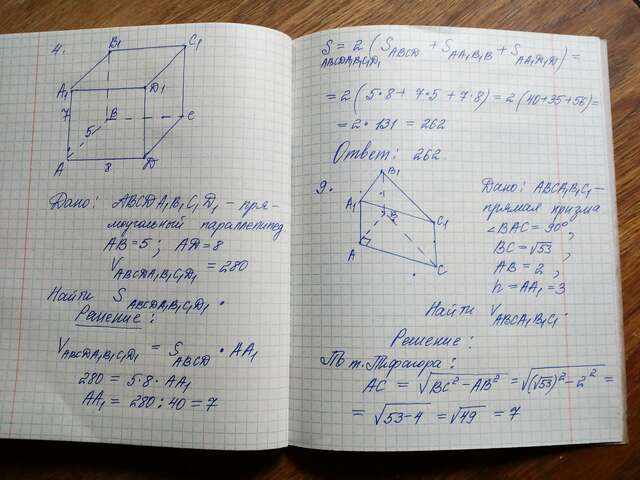 4.
B₁
C₁
A₁
D₁
7
B
C
5
A
8
D
Дано: ABCDA₁B₁C₁D₁ – пря-
моугольный параллепипед
AB = 5 ; AD = 8
V ABCDA₁B₁C₁D₁ = 280
Найти S ABCDA₁B₁C₁D₁.
Решение:
V ABCDA₁B₁C₁D₁ = S ABCD · AA₁
280 = 5·8·AA₁
AA₁ = 280 : 40 = 7
S ABCDA₁B₁C₁D₁ = 2 ( S ABCD + S AA₁B₁B + S AA₁D₁D ) =
= 2 ( 5·8 + 7·5 + 7·8 ) = 2 (40 + 35 + 56) =
= 2 · 131 = 262
Ответ: 262.
9.
B₁
A₁
B
C₁
A
C
Дано: ABCA₁B₁C₁ –
прямая призма
∠BAC = 90°,
BC = √53 ,
AB = 2 ,
h = AA₁ = 3
Найти V ABCA₁B₁C₁.
Решение:
По т. Пифагора:
AC = √BC² – AB² = √(√53)² – 2² =
= √53 – 4 = √49 = 7